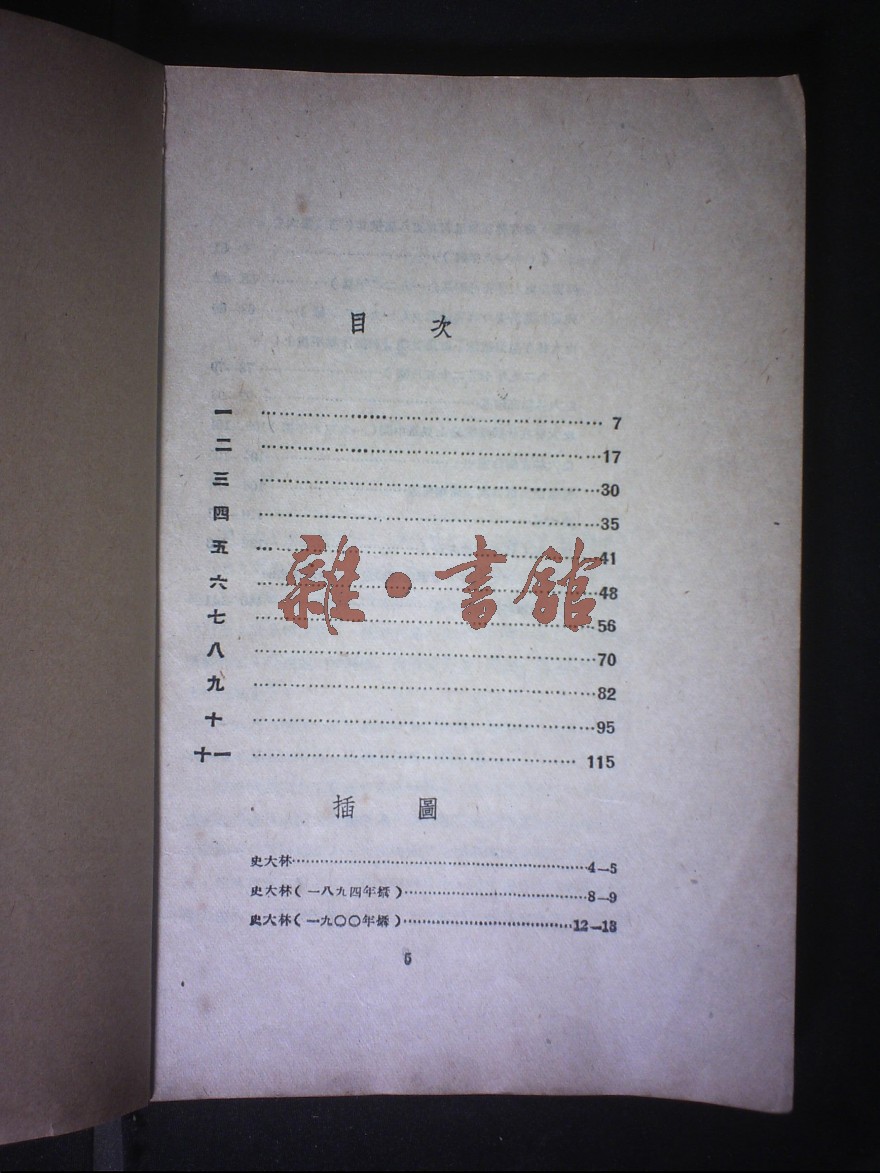 目 次
一 ………………………………………………… 7
二 …………………………………………………17
三 …………………………………………………30
四 …………………………………………………35
五 …………………………………………………41
六 …………………………………………………48
七 …………………………………………………56
八 …………………………………………………70
九 …………………………………………………82
十 …………………………………………………95
十一 ……………………………………………… 115
雜·書館
插 圖
史大林…………………………………………4—5
史大林(一八九四年攝)…………………………8—9
史大林(一九〇〇年攝)………………………12—13
5